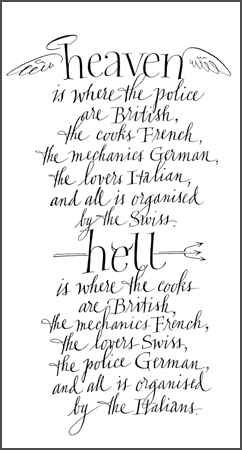 heaven
is where the police
are British,
the cooks French,
the mechanics German,
the lovers Italian,
and all is organised
by the Swiss.
hell
is where the cooks
are British,
the mechanics French,
the lovers Swiss,
the police German,
and all is organised
by the Italians.